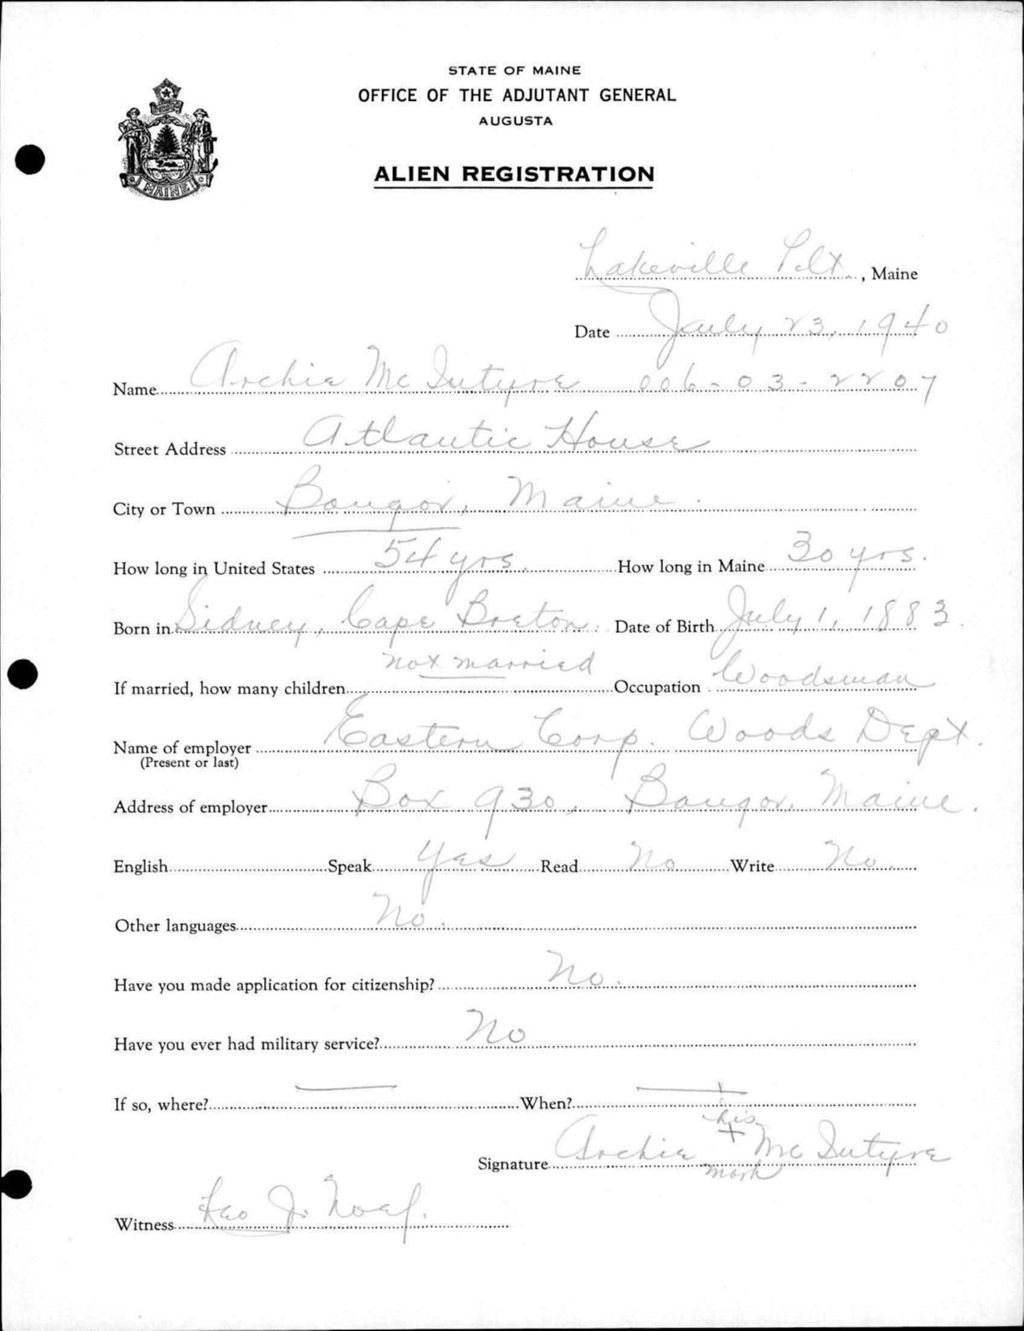 STATE OF MAINE
OFFICE OF THE ADJUTANT GENERAL
AUGUSTA
ALIEN REGISTRATION
MAINE
Lakeville Plt., Maine
Date July 23, 1940
Name Archie McIntyre 006-03-2207
Street Address Atlantic House
City or Town Bangor, Maine.
How long in United States 54 yrs. How long in Maine 30 yrs.
Born in Sidney, Cape Breton. Date of Birth July 1, 1883.
If married, how many children not married Occupation Woodsman
Name of employer Eastern Corp. Woods Dept.
(Present or last)
Address of employer Box 930, Bangor, Maine.
English Speak Yes Read No Write No.
Other languages No.
Have you made application for citizenship? No.
Have you ever had military service? No
If so, where? — When? —
his
Signature Archie + McIntyre
mark
Witness Leo J.